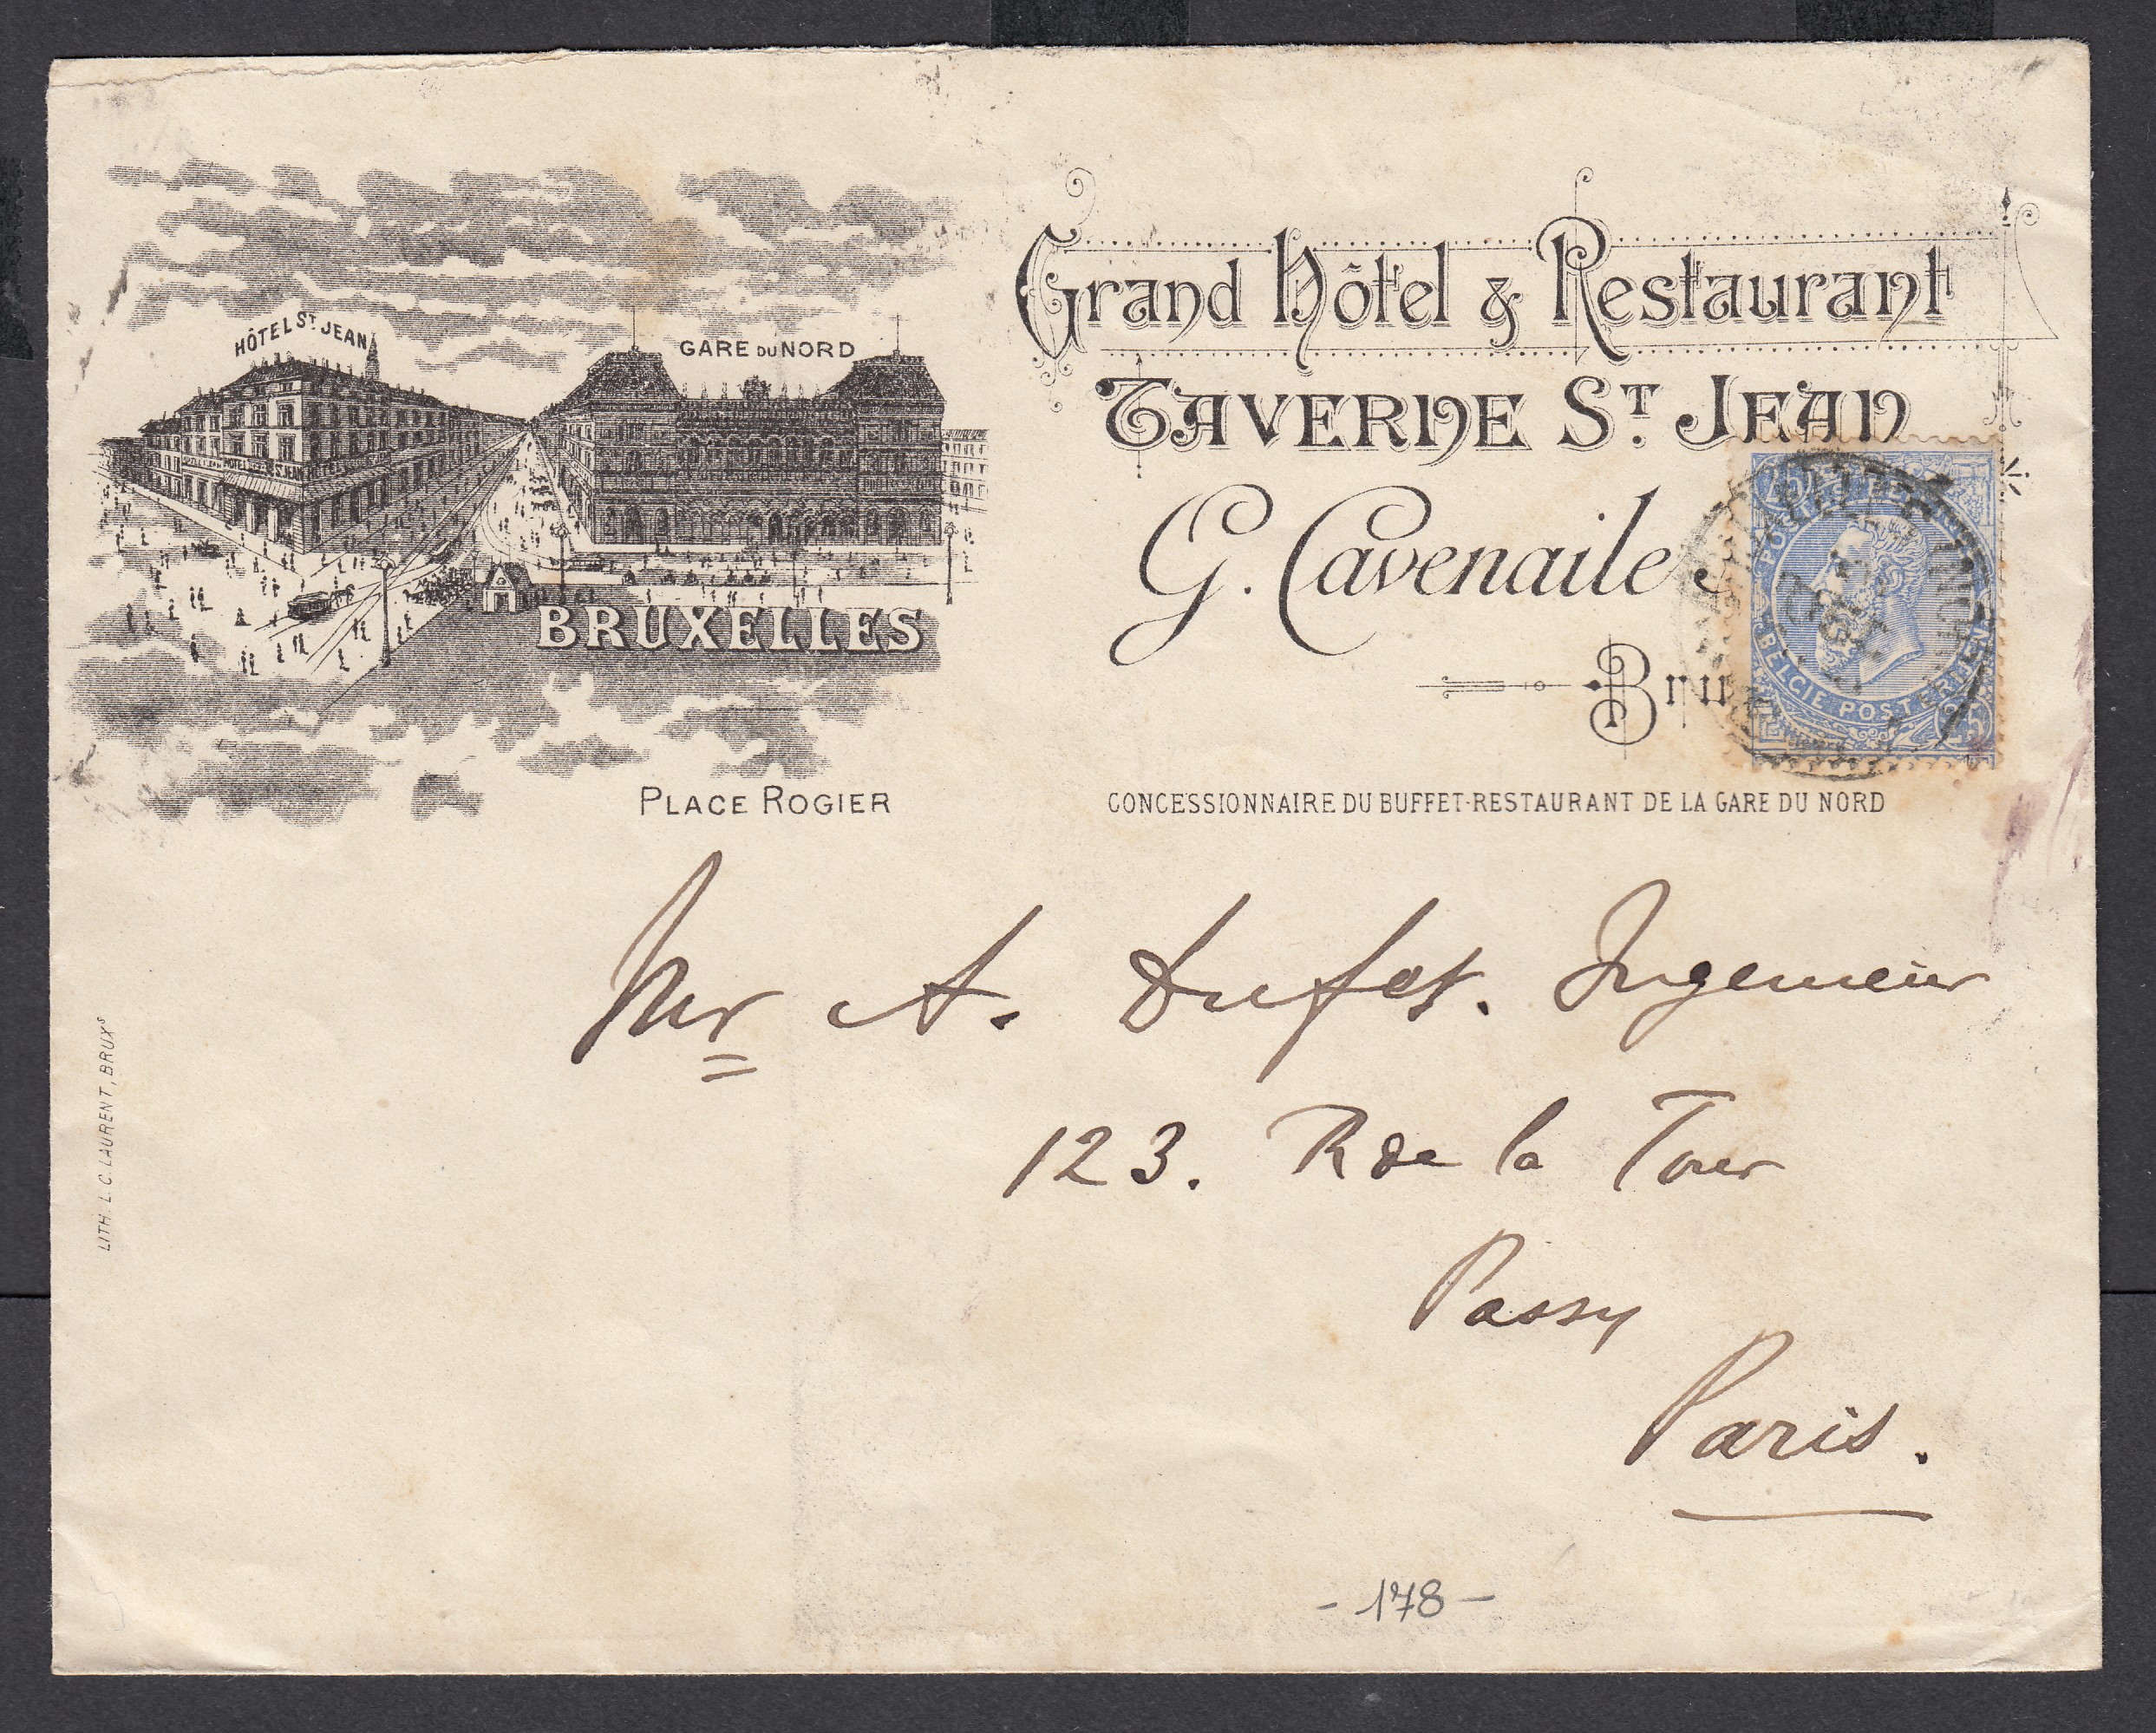 HÔTEL ST JEAN
GARE DU NORD
BRUXELLES
PLACE ROGIER
Grand Hôtel & Restaurant
TAVERNE ST. JEAN
G. Cavenaile
Bru
CONCESSIONNAIRE DU BUFFET-RESTAURANT DE LA GARE DU NORD
25
BELGIE POSTERIJEN
25
Mr A. Dufet. Ingenieur
123. R de la Tour
Passy
Paris.
LITH. L.C. LAURENT, BRUXS
- 178 -